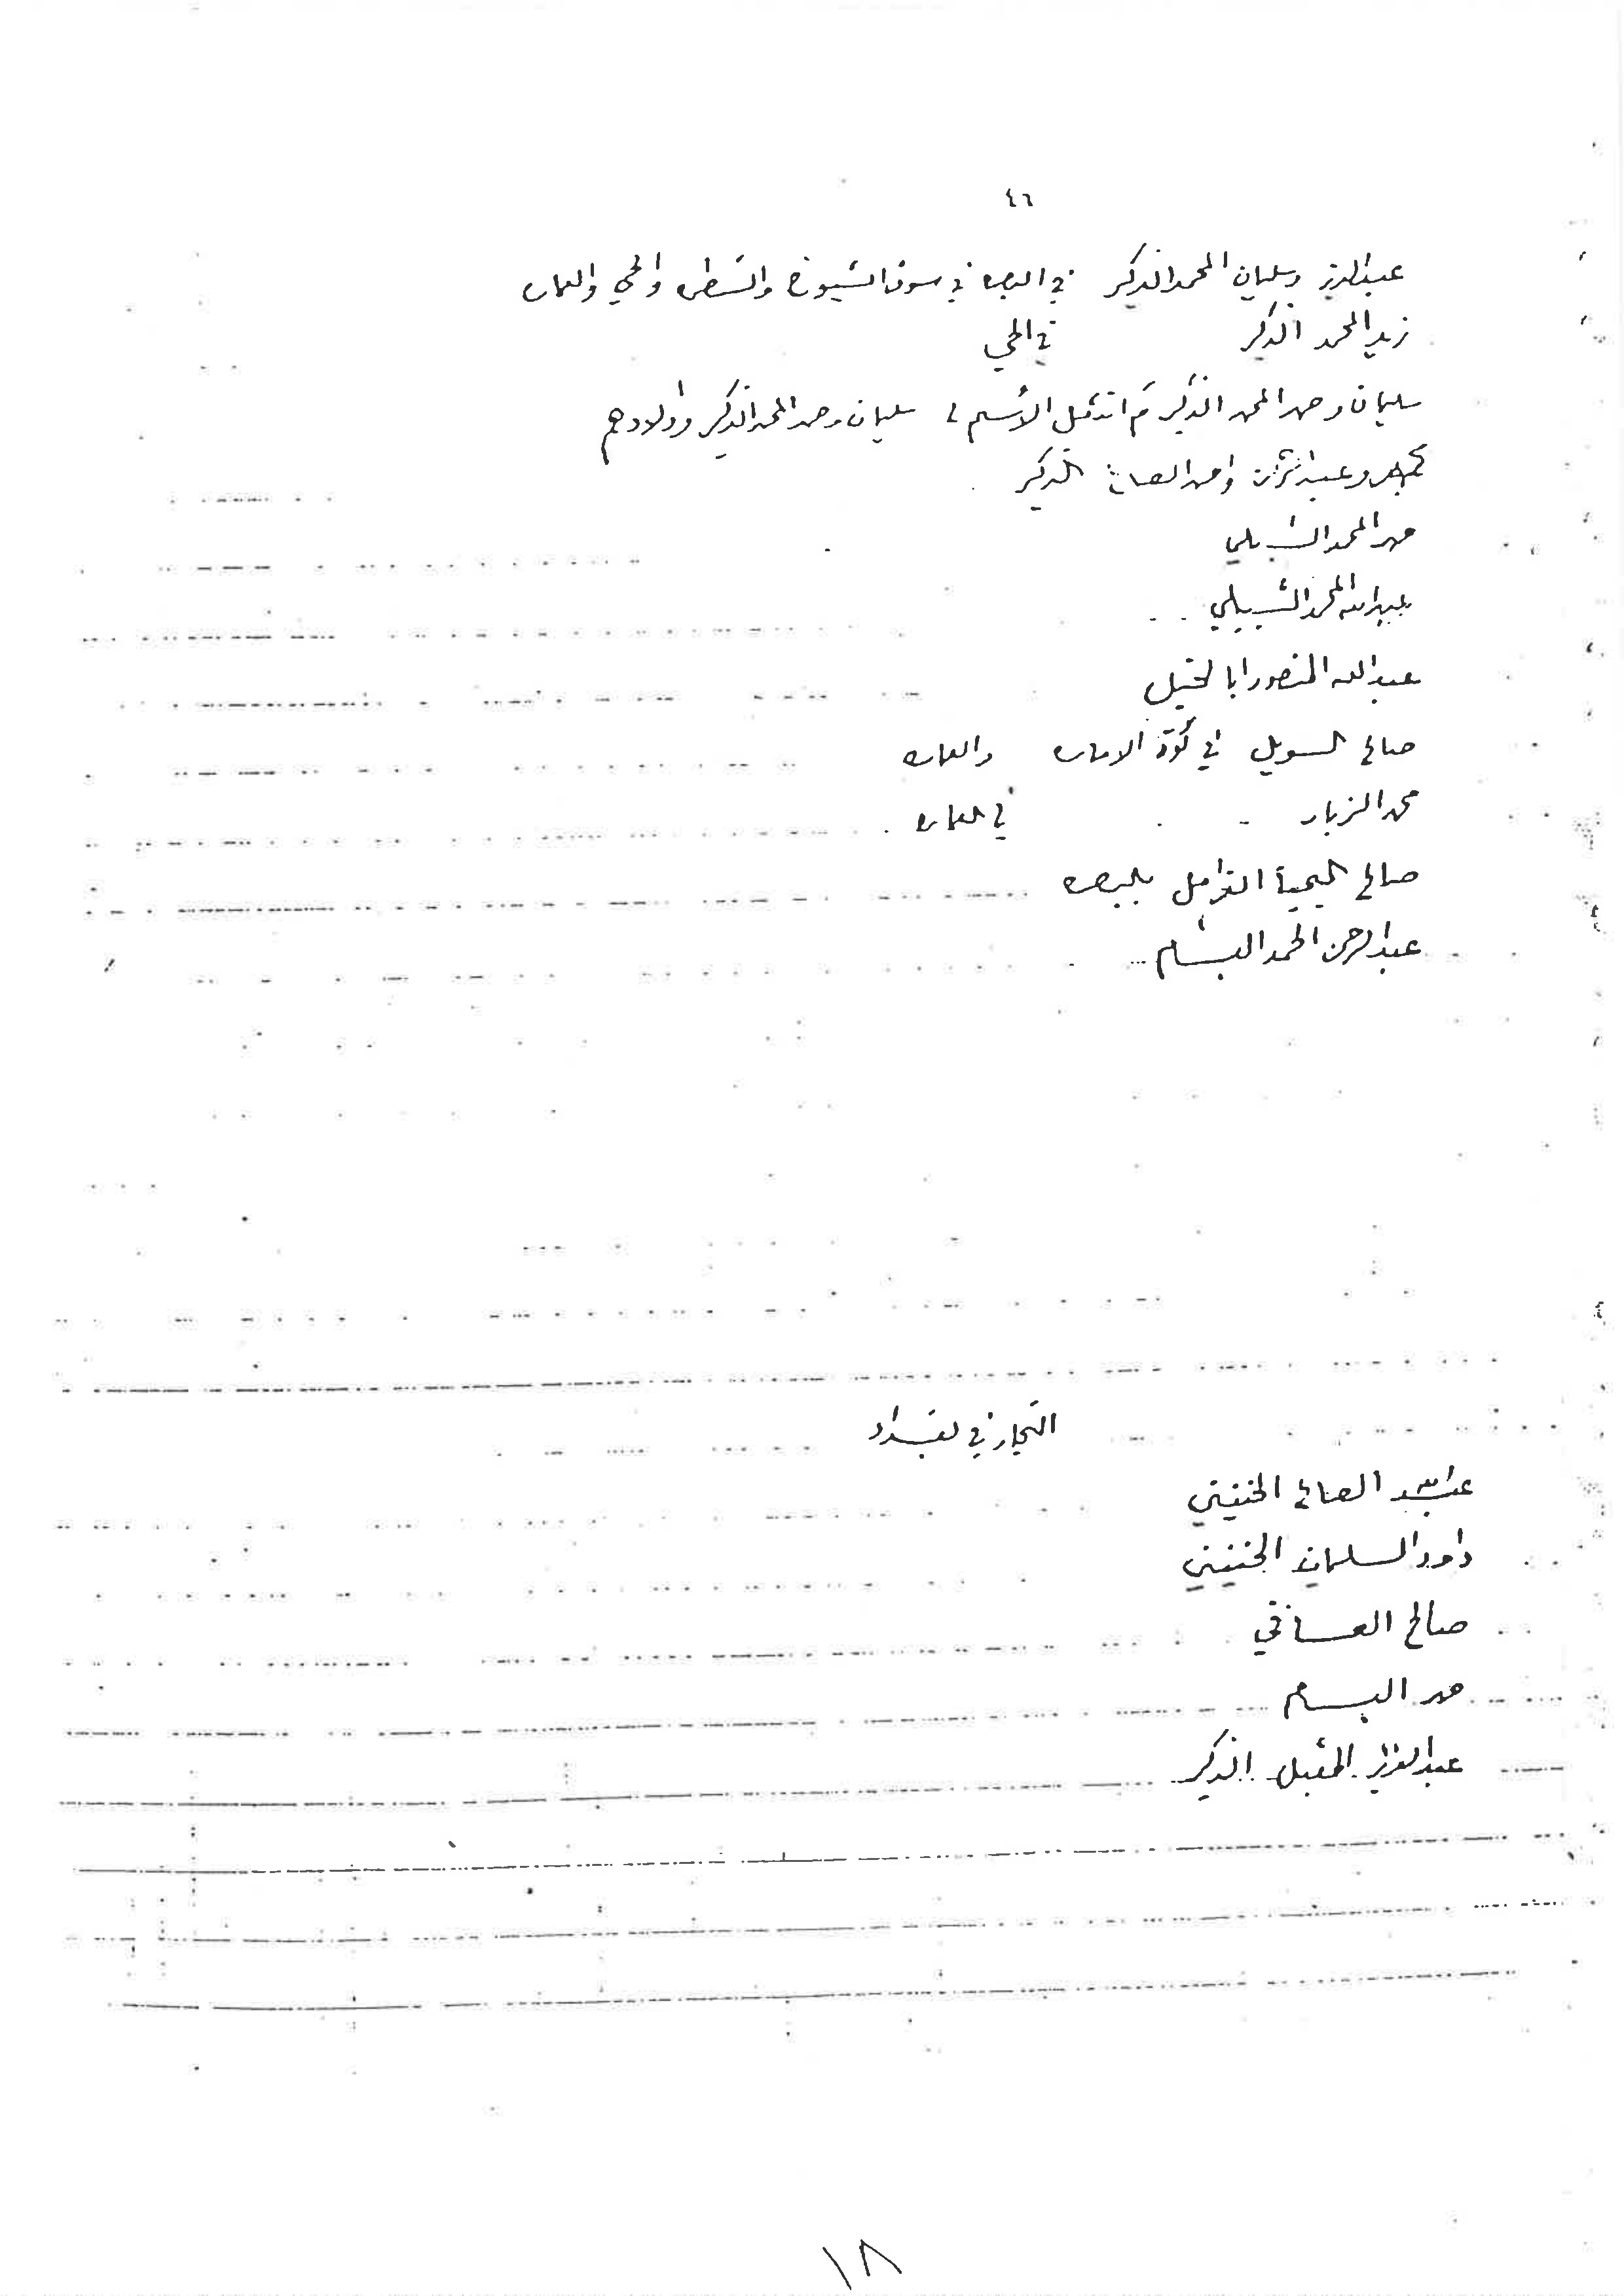 ٤٦
عبدالعزيز وسليمان المحمد الذكير في البصره في سوق الشيوخ والشطره والحي والعماره
زيد المحمد الذكير في الحي
سليمان وحمد المحمد الذكير ثم انتقل الأسم لـ سليمان وحمد المحمد الذكير وأولادهم
وعبدالرحمن واحمد الصالح الذكير
حمد المحمد الشبيلي
عبدالله المحمد الشبيلي
عبدالله المنصور ابا الخيل
صالح السويل في كوت الاماره والعماره
محمد الزبار في العماره
صالح اليحيا القرامل بالبصره
عبدالرحمن الحمد البسام
التجار في بغداد
الصالح الخنيني
داود السليمان الخنيني
صالح العسافي
حمد البسام
عبدالعزيز المقبل الذكير
١٨